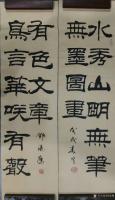 水秀山明無筆
無墨圖畫
戊戌
鳥言華咲有聲
有色文章